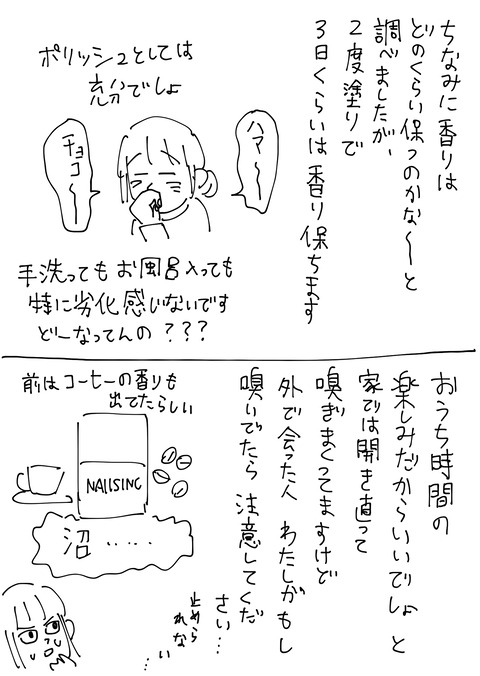 ちなみに香りは
どのくらい保つのかな〜と
調べましたが、
2度塗りで
3日くらいは香り保ちます
ポリッシュとしては
充分でしょ
ハア〜
チョコ〜
手洗ってもお風呂入っても
特に劣化感じないです
どーなってんの???
おうち時間の
楽しみだからいいでしょと
家では開き直って
嗅ぎまくってますけど
外で会った人 わたしがもし
嗅いでたら注意してくだ
さい…
止めら
れな
い…
前はコーヒーの香りも
出てたらしい
NAILSINC
沼‥‥‥